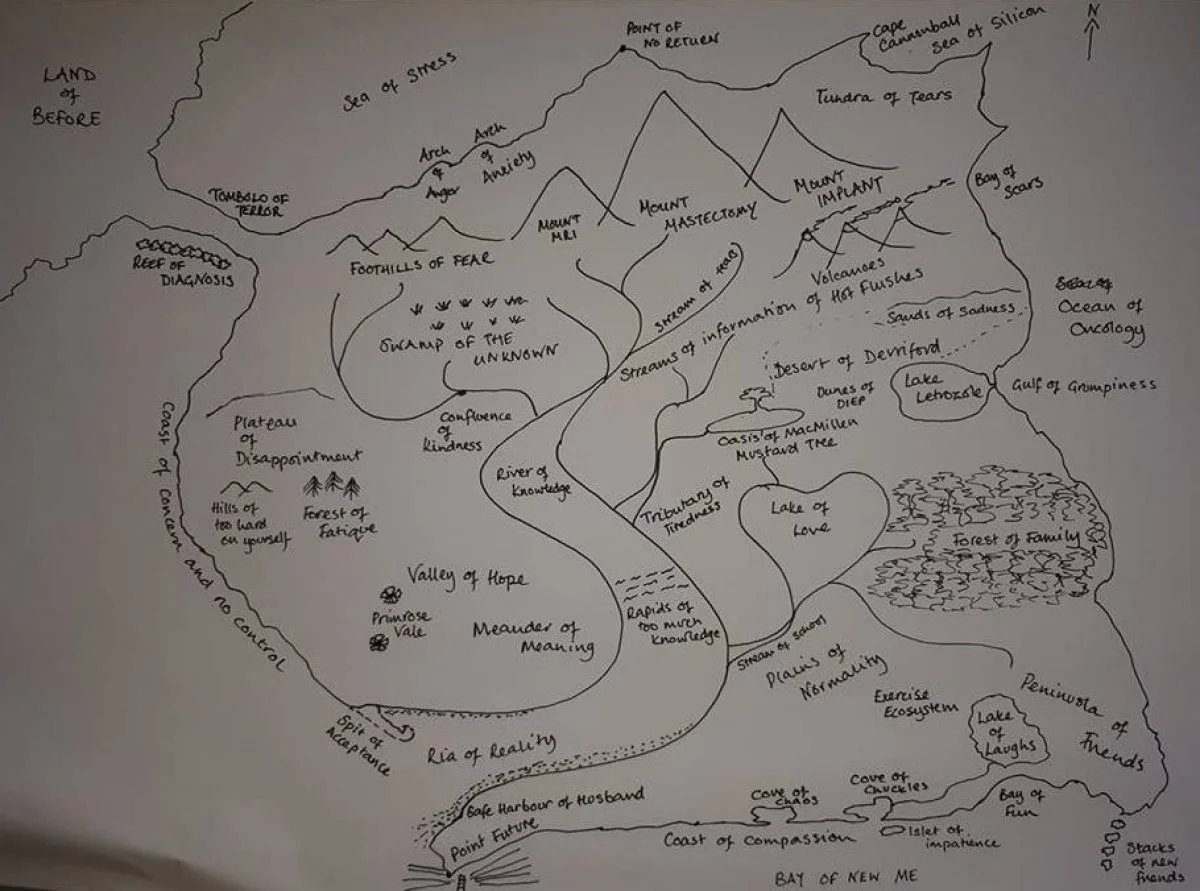 N
POINT OF
NO RETURN
Cape
Cannonball
Sea of Silicon
LAND
of
BEFORE
Sea of Stress
Tundra of Tears
Arch
of
Anger
Arch
of
Anxiety
TOMBOLO OF
TERROR
Bay of
Scars
MOUNT
IMPLANT
MOUNT
MASTECTOMY
MOUNT
MRI
REEF OF
DIAGNOSIS
FOOTHILLS OF FEAR
Stream of tears
Volcanoes
of Hot Flushes
Streams of information
Sands of Sadness
Ocean of
Oncology
SWAMP OF THE
UNKNOWN
Desert of Derriford
Dunes of
DIEP
Lake
Letrozole
Gulf of Grumpiness
Confluence
of
Kindness
Oasis of MacMillen
Mustard Tree
Plateau
of
Disappointment
Coast of concern and no control
River of
Knowledge
Hills of
too hard
on yourself
Forest of
Fatigue
Tributary of
Tiredness
Lake of
Love
Forest of Family
Valley of Hope
Primrose
Vale
Meander of
Meaning
Rapids of
too much
Knowledge
Stream of School
Plains of
Normality
Exercise
Ecosystem
Peninsula of
Friends
Lake
of
Laughs
Spit of
Acceptance
Ria of Reality
Safe Harbour of Husband
Point Future
Cove of
Chaos
Cove of
Chuckles
Bay of
Fun
Coast of Compassion
Islet of
impatience
Stacks
of new
friends
BAY OF NEW ME